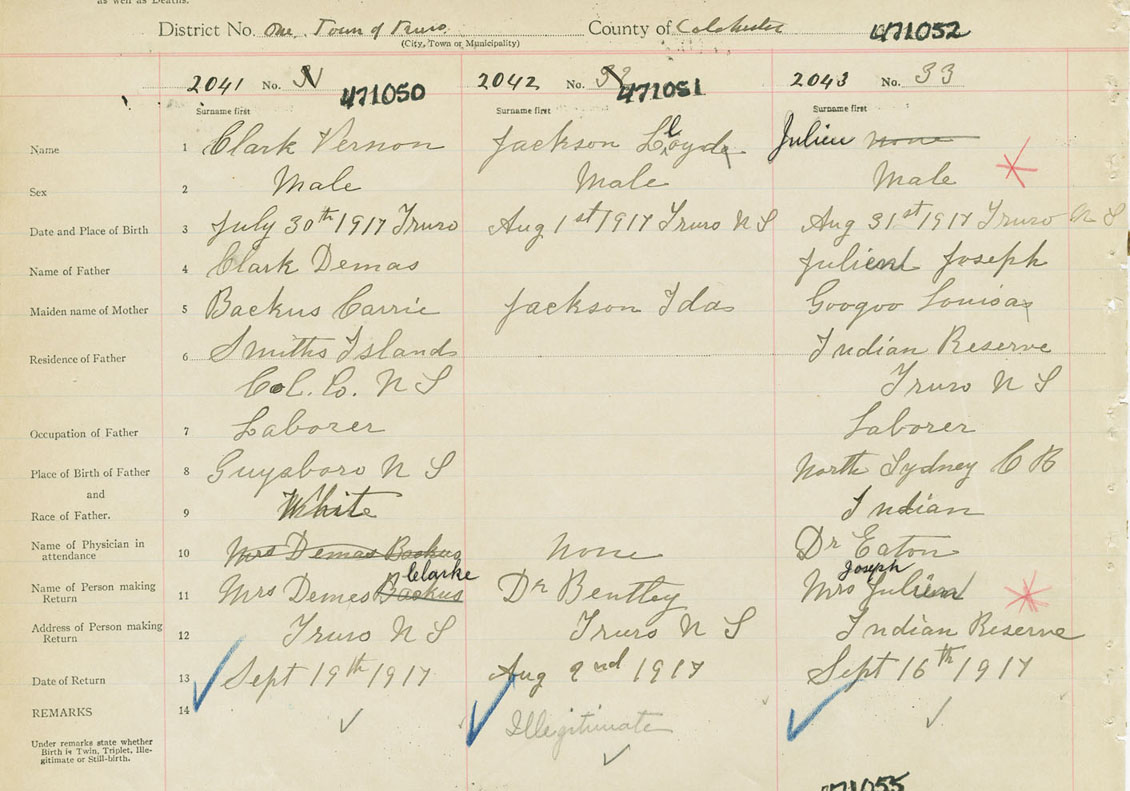 as well as Deaths.
District No. One. Town of Truro County of Colchester 471052
(City, Town or Municipality)
2041 No. 471050 2042 No. 471051 2043 No. 33
Surname first Surname first Surname first
Name 1 Clark Vernon Jackson Julien none
Sex 2 Male Male Male
Date and Place of Birth 3 July 30th 1917 Truro Aug 1st 1917 Truro N S Aug 31st 1917 Truro N S
Name of Father 4 Clark Demas Julien Joseph
Maiden name of Mother 5 Backus Carrie Jackson Ida Googoo Louisa
Residence of Father 6 Smiths Island Indian Reserve
Col. Co. N S Truro N S
Occupation of Father 7 Laborer Laborer
Place of Birth of Father 8 Guysboro N S North Sydney C B
and
Race of Father. 9 White Indian
Name of Physician in
attendance 10 Mrs Demas Backus None Dr Eaton
Clarke Joseph
Name of Person making
Return 11 Mrs Demes Backus Dr Bentley Mrs Julien
Address of Person making
Return 12 Truro N S Truro N S Indian Reserve
Date of Return 13 Sept 19th 1917 Aug 2nd 1917 Sept 16th 1917
REMARKS 14 Illegitimate
Under remarks state whether
Birth is Twin, Triplet, Ille-
gitimate or Still-birth.
471055